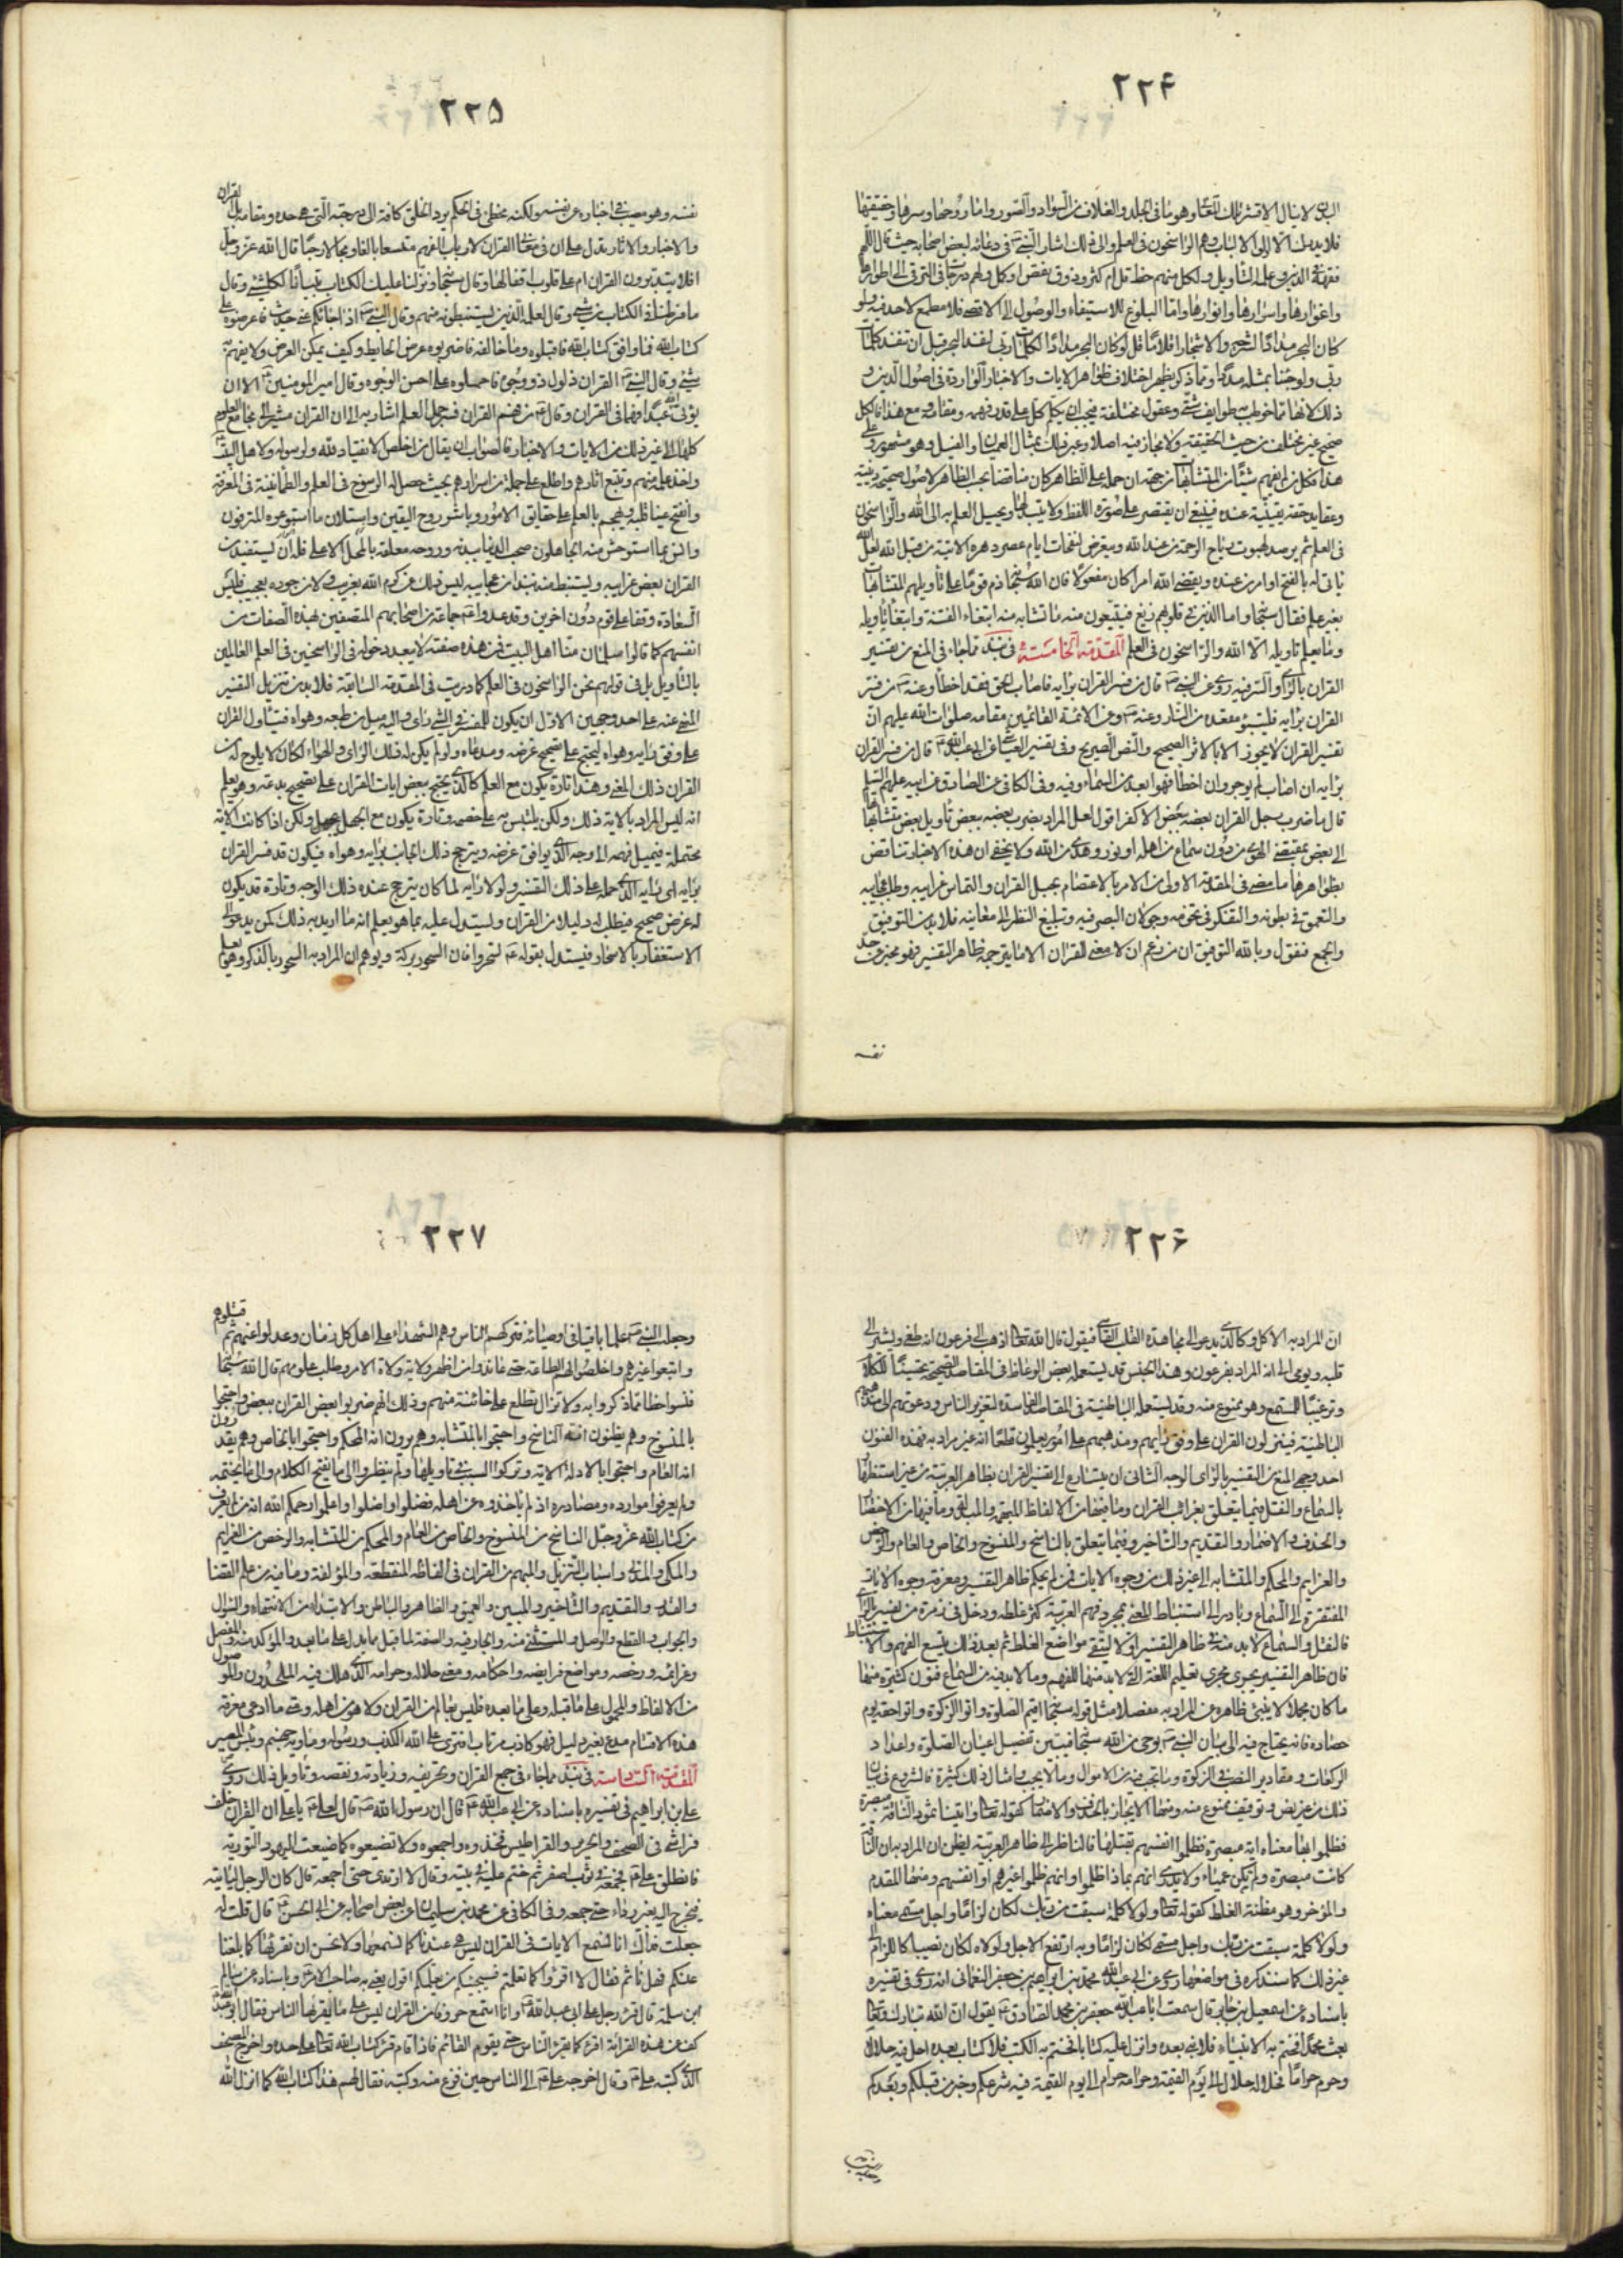 ٢٢۴
البدن لا ينال الا قشر تلك المعاني وهو ما في الجلد والغلاف من السواد والصور واما روحها وسرها وحقيقتها
فلا يدرك الا اولوا الالباب وهم الراسخون في العلم والى ذلك اشار النبي في دعائه لبعض اصحابه حيث قال اللهم
فقهه في الدين وعلمه التأويل ولكل منهم حظ قل ام كثر وذوق نقص او كمل ولهم درجات في الترقي الى اطوارها
واغوارها واسرارها وانوارها واما البلوغ للاستيفاء والوصول الى الاقصى فلا مطمع لاحد فيه ولو
كان البحر مدادا لشرحه والاشجار اقلاما قل لو كان البحر مدادا لكلمات ربي لنفد البحر قبل ان تنفد كلمات
ربي ولو جئنا بمثله مددا ومما ذكر يظهر اختلاف ظواهر الايات والاخبار الواردة في اصول الدين و
ذلك لانها مما خوطب به طوايف شتى وعقول مختلفة فيجب ان يكلم كل على قدر فهمه ومقامه ومع هذا فالكل
صحيح غير مختلف من حيث الحقيقة ولا مجاز فيه اصلا واعتبر ذلك بمثال العميان والفيل وهو مشهور وعلى
هذا فكل من لم يفهم شيئا من المتشابهات من جهة ان حمله على الظاهر كان مناقضا بحسب الظاهر لاصول صحيحة دينية
وعقايد حقة يقينية عنده فينبغي ان يقتصر على صورة اللفظ ولا يبدلها ويحيل العلم به الى الله والراسخون
في العلم ثم يرصد لهبوب رياح الرحمة من عند الله ويتعرض لنفحات ايام عصره دهره الاتية من قبل الله لعل الله
ياتي له بالفتح او امر من عنده ويقضي الله امرا كان مفعولا فان الله سبحانه ذم قوما على تأويلهم المتشابهات
بغير علم فقال سبحانه واما الذين في قلوبهم زيغ فيتبعون منه ما تشابه منه ابتغاء الفتنة وابتغاء تأويله
وما يعلم تأويله الا الله والراسخون في العلم المقدمة الخامسة في نبذ مما جاء في المنع من تفسير
القران بالرأي والسر فيه روي عن النبي قال من فسر القران برأيه فاصاب الحق فقد اخطأ وعنه من فسر
القران برأيه فليتبوء مقعده من النار وعنه وعن الائمة القائمين مقامه صلوات الله عليهم ان
تفسير القران لا يجوز الا بالاثر الصحيح والنص الصريح وفي تفسير العياشي عن ابي عبد الله قال من فسر القران
برأيه ان اصاب لم يوجر وان اخطأ فهو ابعد من السماء وفيه وفي الكافي عن الصادق عن ابيه عليهم السلم
قال ما ضرب رجل القران بعضه ببعض الا كفر اقول لعل المراد بضرب بعضه ببعض تأويل بعض متشابهاته
الى بعض بمقتضى الهوى من دون سماع من اهله او نور وهدى من الله ولا يخفى ان هذه الاخبار تناقض
بظواهرها ما مضى في المقدمة الاولى من الامر بالاعتصام بحبل القران والتماس غرايبه وطلب عجايبه
والتعمق في بطونه والتفكر في تخومه وجولان البصر فيه وتبليغ النظر الى معانيه فلا بد من التوفيق
والجمع فنقول وبالله التوفيق ان من زعم ان لا معنى للقران الا ما يترجمه ظاهر التفسير فهو مخبر عن حد
نفسه
٢٢۵
نفسه وهو مصيب في اخباره عن نفسه ولكنه مخطئ في الحكم برد الخلق كافة الى درجته التي هي حده ومقامه بل القران
والاخبار والاثار يدل على ان في معاني القران لارباب الفهم متسعا بالغا ومجالا رحبا قال الله عز وجل
افلا يتدبرون القران ام على قلوب اقفالها وقال سبحانه ونزلنا عليك الكتاب تبيانا لكل شئ وقال
ما فرطنا في الكتاب من شئ وقال لعلمه الذين يستنبطونه منهم وقال النبي اذا جائكم عني حديث فاعرضوه على
كتاب الله فما وافق كتاب الله فاقبلوه وما خالفه فاضربوه عرض الحايط وكيف يمكن العرض ولا يفهم به
شئ وقال النبي القران ذلول ذو وجوه فاحملوه على احسن الوجوه وقال امير المومنين الا ان
يوتى الله عبدا فهما في القران وقال من فهم القران فسر جمل العلم اشار به الى ان القران مشير الى مجامع العلوم
كلها الى غير ذلك من الايات والاخبار فالصواب ان يقال من اخلص الانقياد لله ولرسوله ولاهل البيت
واخذ علمه منهم وتتبع اثارهم واطلع على جملة من اسرارهم بحيث حصل له الرسوخ في العلم والطمانينة في المعرفة
وانفتح عينا قلبه وهجم به العلم على حقايق الامور وباشر روح اليقين واستلان ما استوعره المترفون
وانس بما استوحش منه الجاهلون وصحب الدنيا ببدنه وروحه معلقة بالمحل الاعلى فله ان يستفيد من
القران بعض غرايبه ويستنبط منه نبذا من عجايبه ليس ذلك من كرم الله بغريب ولا من جوده بعجيب فليس
السعادة وقفا على قوم دون اخرين وقد عدوا جماعة من اصحابهم المتصفين بهذه الصفات من
انفسهم كما قالوا سلمان منا اهل البيت فمن هذه صفته لا يبعد دخوله في الراسخين في العلم العالمين
بالتأويل بل في قولهم نحن الراسخون في العلم كما دريت في المقدمة السابقة فلا بد من تنزيل التفسير
المنهي عنه على احد وجهين الاول ان يكون للمفسر في الشئ رأي واليه ميل من طبعه وهواه فيتأول القران
على وفق رايه وهواه ليحتج على تصحيح غرضه ومدعاه ولو لم يكن له ذلك الراى والهواء لكان لا يلوح له من
القران ذلك المعنى وهذا تارة يكون مع العلم كالذي يحتج ببعض ايات القران على تصحيح بدعته وهو يعلم
انه ليس المراد بالاية ذلك ولكن يلبس به على خصمه وتارة يكون مع الجهل ولكن اذا كانت الاية
محتملة فيميل فهمه الى الوجه الذي يوافق غرضه ويترجح ذلك الجانب برايه وهواه فيكون قد فسر القران
برايه اي رايه الذي حمله على ذلك التفسير ولولا رايه لما كان يترجح عنده ذلك الوجه وتارة قد يكون
له غرض صحيح فيطلب له دليلا من القران ويستدل عليه بما هو يعلم انه ما اريد به ذلك كمن يدعو الى
الاستغفار بالاسحار فيستدل بقوله تسحروا فان السحور بركة ويوهم ان المراد به السحور بالذكر وهو يعلم
٢٢۶
ان المراد به الاكل وكالذي يدعو الى مجاهدة القلب القاسي فيقول قال الله تعالى اذهب الى فرعون انه طغى ويشير الى
قلبه ويومي الى انه المراد بفرعون وهذا الجنس قد يستعمله بعض الوعاظ في المقاصد الصحيحة تحسينا للكلام
وترغيبا للمستمع وهو ممنوع منه وقد يستعمله الباطنية في المقاصد الفاسدة لتغرير الناس ودعوتهم الى مذهبهم
الباطنية فينزلون القران على وفق رايهم ومذهبهم على امور يعلمون قطعا انه غير مراد به فهذه الفنون
احد وجهي المنع من التفسير بالراى الوجه الثاني ان يتسارع الى تفسير القران بظاهر العربية من غير استظهار
بالسماع والنقل فيما يتعلق بغرائب القران وما فيها من الالفاظ المبهمة والمبدلة وما فيها من الاختصار
والحذف والاضمار والتقديم والتاخير وفيما يتعلق بالناسخ والمنسوخ والخاص والعام والرخص
والعزايم والمحكم والمتشابه الى غير ذلك من وجوه الايات فمن لم يحكم ظاهر التفسير ومعرفة وجوه الايات
المفتقرة الى السماع وبادر الى استنباط المعاني بمجرد فهم العربية كثر غلطه ودخل في زمرة من يفسر بالراي
فالنقل والسماع لا بد منه في ظاهر التفسير اولا ليتقي مواضع الغلط ثم بعد ذلك يتسع الفهم والاستنباط
فان ظاهر التفسير يجري مجرى تعليم اللغة التي لا بد منها للفهم وما لا بد فيه من السماع فنون كثيرة منها
ما كان مجملا لا ينبئ ظاهره عن المراد به مفصلا مثل قوله سبحانه اقيموا الصلوة واتوا الزكوة واتوا حقه يوم
حصاده فانه يحتاج فيه الى بيان النبي بوحي من الله سبحانه فيبين تفصيل اعيان الصلوة واعداد
الركعات ومقادير النصب في الزكوة وما تجب فيه من الاموال وما لا يجب وامثال ذلك كثيرة فالشروع في بيان
ذلك من غير نص وتوقيف ممنوع منه ومنها الايجاز بالحذف والاضمار كقوله تعالى واتينا ثمود الناقة مبصرة
فظلموا بها معناه اية مبصرة فظلموا انفسهم بقتلها فالناظر الى ظاهر العربية يظن ان المراد به ان الناقة
كانت مبصرة ولم تكن عمياء ولا يدري انهم بماذا ظلموا وانهم ظلموا غيرهم او انفسهم ومنها المقدم
والمؤخر وهو مظنة الغلط كقوله تعالى ولولا كلمة سبقت من ربك لكان لزاما واجل مسمى معناه
ولولا كلمة سبقت من ربك واجل مسمى لكان لزاما وبه ارتفع الاجل ولولاه لكان نصبا كاللزام الى
غير ذلك كما سنذكره في مواضعها روى عن ابي عبد الله محمد بن ابراهيم بن جعفر النعماني انه روى في تفسيره
باسناده عن اسمعيل بن جابر قال سمعت ابا عبد الله جعفر بن محمد الصادق يقول ان الله تبارك وتعالى
بعث محمدا فختم به الانبياء فلا نبي بعده وانزل عليه كتابا فختم به الكتب فلا كتاب بعده احل فيه حلالا
وحرم حراما فحلاله حلال الى يوم القيمة وحرامه حرام الى يوم القيمة فيه شرعكم وخبر من قبلكم وبعدكم
٢٢٧
وجعله النبي علما باقيا في اوصيائه فتركهم الناس وهم الشهداء على اهل كل زمان وعدلوا عنهم ثم قتلوهم
واتبعوا غيرهم واخلصوا لهم الطاعة حتى عاندوا من اظهر ولاية ولاة الامر وطلب علومهم قال الله سبحانه
فنسوا حظا مما ذكروا به ولا تزال تطلع على خائنة منهم وذلك انهم ضربوا بعض القران ببعض واحتجوا
بالمنسوخ وهم يظنون انه الناسخ واحتجوا بالمتشابه وهم يرون انه المحكم واحتجوا بالخاص وهم يقدرون
انه العام واحتجوا باول الاية وتركوا السبب في تاويلها ولم ينظروا الى ما يفتح الكلام والى ما يختمه
ولم يعرفوا موارده ومصادره اذ لم ياخذوه عن اهله فضلوا واضلوا واعلموا رحمكم الله انه من لم يعرف
من كتاب الله عز وجل الناسخ من المنسوخ والخاص من العام والمحكم من المتشابه والرخص من العزايم
والمكي والمدني واسباب التنزيل والمبهم من القران في الفاظه المنقطعة والمؤلفة وما فيه من علم القضا
والقدر والتقديم والتاخير والمبين والعميق والظاهر والباطن والابتداء من الانتهاء والسؤال
والجواب والقطع والوصل والمستثنى منه والجار فيه والصفة لما قبل مما يدل على ما بعد والمؤكد منه والمفصل
وعزائمه ورخصه ومواضع فرايضه واحكامه ومعنى حلاله وحرامه الذي هلك فيه الملحدون والموصول
من الالفاظ والمحمول على ما قبله وعلى ما بعده فليس بعالم من القران ولا هو من اهله ومتى ما ادعى معرفة
هذه الاقسام مدع بغير دليل فهو كاذب مرتاب افترى على الله الكذب ورسوله وماويه جهنم وبئس المصير
المقدمة السادسة في نبذ مما جاء في جمع القران وتحريفه وزيادته ونقصه وتاويل ذلك روى
علي بن ابراهيم في تفسيره باسناده عن ابي عبد الله قال ان رسول الله قال لعلي يا علي ان القران خلف
فراشي في الصحف والحرير والقراطيس فخذوه واجمعوه ولا تضيعوه كما ضيعت اليهود التورية
فانطلق علي فجمعه في ثوب اصفر ثم ختم عليه في بيته وقال لا ارتدي حتى اجمعه قال كان الرجل لياتيه
فيخرج اليه بغير رداء حتى جمعه وفي الكافي عن محمد بن سليمان عن بعض اصحابه عن ابي الحسن قال قلت له
جعلت فداك انا نسمع الايات في القران ليس هي عندنا كما نسمعها ولا نحسن ان نقرئها كما بلغنا
عنكم فهل نأثم فقال لا اقرؤا كما تعلمتم فسيجيئكم من يعلمكم اقول يعني به صاحب الامر وباسناده عن سالم
ابن سلمة قال قرء رجل على ابي عبد الله وانا استمع حروفا من القران ليس على ما يقرئها الناس فقال ابو عبد الله
كف عن هذه القرائة اقرء كما يقرء الناس حتى يقوم القائم فاذا قام قرء كتاب الله تعالى على حده واخرج المصحف
الذي كتبه علي وقال اخرجه علي الى الناس حين فرغ منه وكتبه فقال لهم هذا كتاب الله كما انزله الله